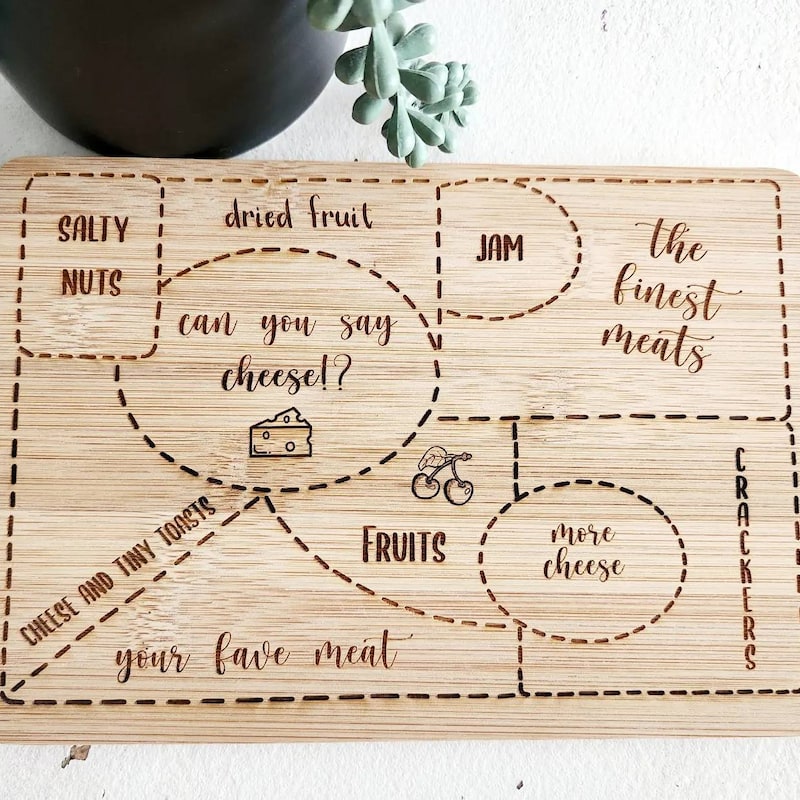 SALTY
NUTS
dried fruit
JAM
the
finest
meats
can you say
cheese!?
CRACKERS
FRUITS
more
cheese
CHEESE AND TINY TOASTS
your fave meat